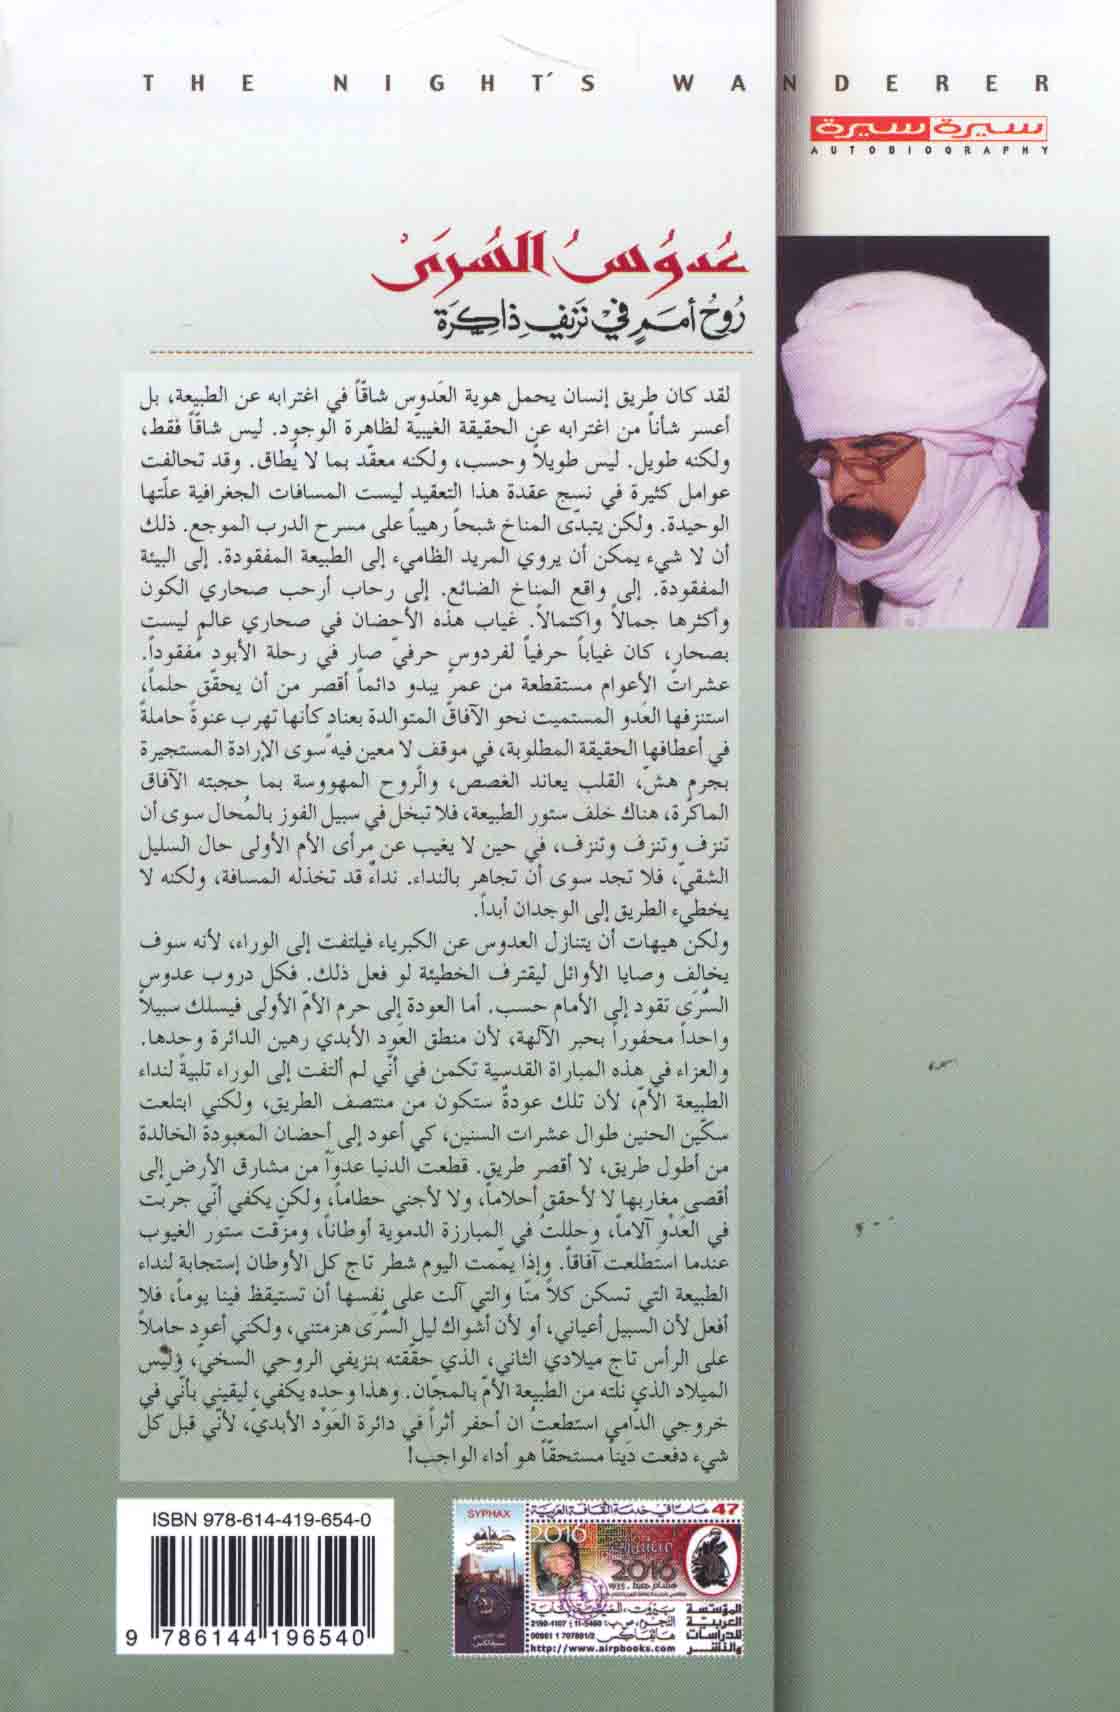 THE NIGHT'S WANDERER
سيرة سيرة
AUTOBIOGRAPHY
عدُوسُ السُرَى
رُوحُ أممٍ في نزيف ذاكِرَة
لقد كان طريق إنسان يحمل هوية العَدوس شاقّاً في اغترابه عن الطبيعة، بل
أعسر شأناً من اغترابه عن الحقيقة الغيبيّة لظاهرة الوجود. ليس شاقّاً فقط،
ولكنه طويل. ليس طويلاً وحسب، ولكنه معقّد بما لا يُطاق. وقد تحالفت
عوامل كثيرة في نسج عقدة هذا التعقيد ليست المسافات الجغرافية علّتها
الوحيدة. ولكن يتبدّى المناخ شبحاً رهيباً على مسرح الدرب الموجع. ذلك
أن لا شيء يمكن أن يروي المريد الظاميء إلى الطبيعة المفقودة. إلى البيئة
المفقودة. إلى واقع المناخ الضائع. إلى رحاب أرحب صحاري الكون
وأكثرها جمالاً واكتمالاً. غياب هذه الأحضان في صحاري عالمٍ ليست
بصحارٍ، كان غياباً حرفياً لفردوس حرفيّ صار في رحلة الأبود مفقوداً.
عشرات الأعوام مستقطعة من عمرٍ يبدو دائماً أقصر من أن يحقّق حلماً،
استنزفها العَدو المستميت نحو الآفاق المتوالدة بعنادٍ كأنها تهرب عنوةً حاملةً
في أعطافها الحقيقة المطلوبة، في موقف لا معين فيه سوى الإرادة المستجيرة
بجرمٍ هشّ، القلب يعاند الغصص، والروح المهووسة بما حجبته الآفاق
الماكرة، هناك خلف ستور الطبيعة، فلا تبخل في سبيل الفوز بالمُحال سوى أن
تنزف وتنزف وتنزف، في حين لا يغيب عن مرأى الأم الأولى حال السليل
الشقيّ، فلا تجد سوى أن تجاهر بالنداء. نداءٌ قد تخذله المسافة، ولكنه لا
يخطيء الطريق إلى الوجدان أبداً.
ولكن هيهات أن يتنازل العدوس عن الكبرياء فيلتفت إلى الوراء، لأنه سوف
يخالف وصايا الأوائل ليقترف الخطيئة لو فعل ذلك. فكل دروب عدوس
السُّرَى تقود إلى الأمام حسب. أما العودة إلى حرم الأمّ الأولى فيسلك سبيلاً
واحداً محفوراً بحبر الآلهة، لأن منطق العَود الأبدي رهين الدائرة وحدها.
والعزاء في هذه المباراة القدسية تكمن في أنّي لم ألتفت إلى الوراء تلبيةً لنداء
الطبيعة الأمّ، لأن تلك عودةٌ ستكون من منتصف الطريق، ولكني ابتلعت
سكّين الحنين طوال عشرات السنين، كي أعود إلى أحضان المعبودة الخالدة
من أطول طريق، لا أقصر طريق. قطعت الدنيا عدواً من مشارق الأرض إلى
أقصى مغاربها لا لأحقق أحلاماً، ولا لأجني حطاماً، ولكن يكفي أنّي جرّبت
في العَدْو آلاماً، وحللتُ في المبارزة الدموية أوطاناً، ومزّقت ستور الغيوب
عندما استطلعت آفاقاً. وإذا يمّمت اليوم شطر تاج كل الأوطان إستجابة لنداء
الطبيعة التي تسكن كلاً منّا والتي آلت على نفسها أن تستيقظ فينا يوماً، فلا
أفعل لأن السبيل أعياني، أو لأن أشواك ليل السُّرَى هزمتني، ولكني أعود حاملاً
على الرأس تاج ميلادي الثاني، الذي حقّقته بنزيفي الروحي السخيّ، وليس
الميلاد الذي نلته من الطبيعة الأمّ بالمجّان. وهذا وحده يكفي، ليقيني بأنّي في
خروجي الدّامي استطعتُ ان أحفر أثراً في دائرة العَوْد الأبديّ، لأنّي قبل كل
شيء دفعت دَيناً مستحقّاً هو أداء الواجب!
ISBN 978-614-419-654-0
9 786144 196540
47 عاماً في خدمة الثقافة العربية
SYPHAX
2016
2016
المؤسسة
العربية
للدراسات
والنشر
http://www.airpbooks.com